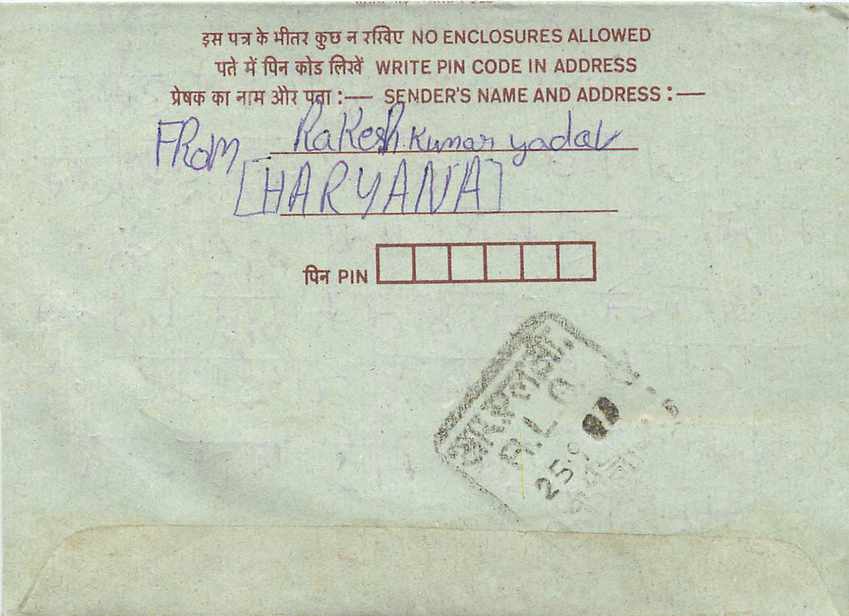 इस पत्र के भीतर कुछ न रखिए NO ENCLOSURES ALLOWED
पते में पिन कोड लिखें WRITE PIN CODE IN ADDRESS
प्रेषक का नाम और पता :— SENDER'S NAME AND ADDRESS :—
FROM RaKesh Kumar yadav
[HARYANA]
पिन PIN
आर.एल.ओ.
R.L.O